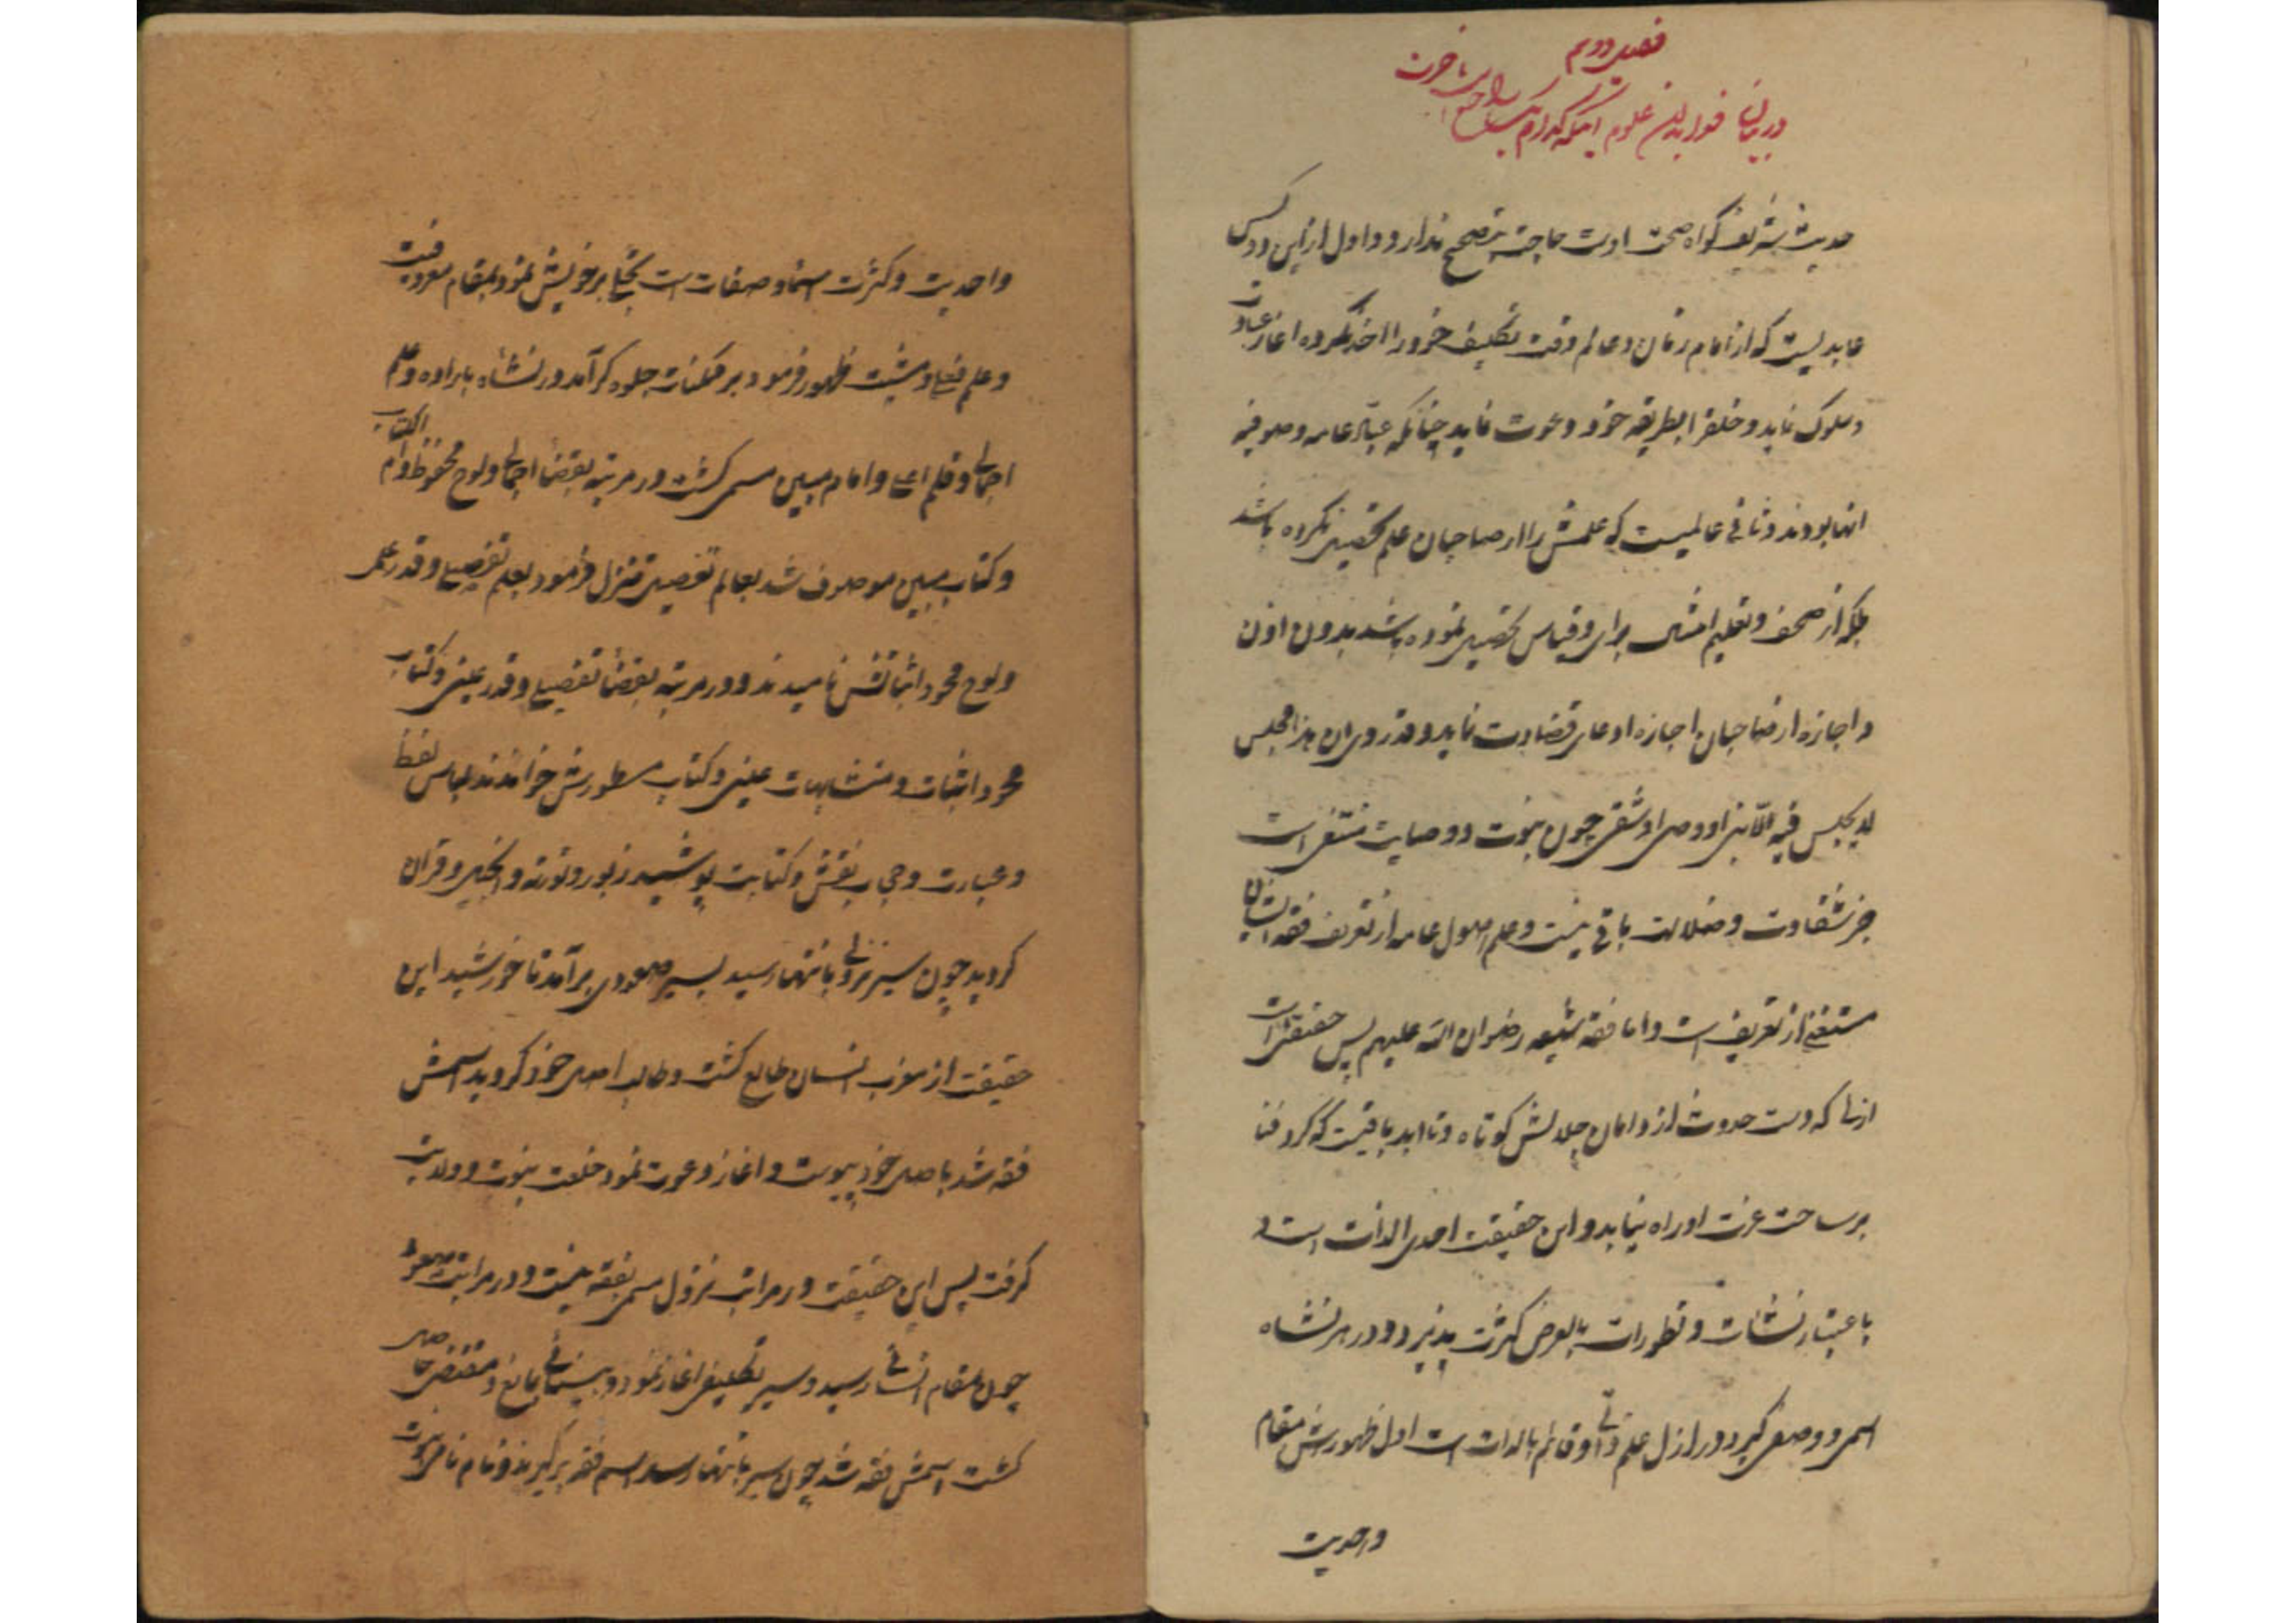 فصل دوم
در بیان فواید این علوم اینکه کدام یک راجع است باخرت
حدیث شریف کواه صحت اوست حاجت بتصحیح ندارد و اول ازین دو کس
عابدیست که از امام زمان و عالم وقت تکلیف خود را اخذ نکرده اغاز عبادت
و سلوک نماید و خلق را بطریقه خود دعوت نماید چنانکه عباد عامه و صوفیه
انها بودند و ثانی عالمیست که علمش را از صاحبان علم تحصیل نکرده باشد
بلکه از صحف و تعلیم امثال برای و قیاس تحصیل نموده باشد بدون اذن
و اجازه از صاحبان اجازه ادعای قضاوت نماید و قد روی ان هذا مجلس
لا یجلس فیه الا نبی او وصی او شقی چون نبوت و وصایت منتفی است
جز شقاوت و ضلالت باقی نیست و علم اصول عامه از تعریف فقه ایشان
مستغنی از تعریف است و اما فقه شیعه رضوان الله علیهم پس حقیقتی است
ازلی که دست حدوث از دامان جلالش کوتاه و تا ابد باقیست که کرد فنا
بر ساحت عزت او راه نیابد و این حقیقت احدی الذات است و
باعتبار نشئات و تطورات بالعرض کثرت پذیرد و در هر نشاه
اسمی و وصفی کیرد در ازل علم ذاتی او قائم بالذات است اول ظهورش مقام
واحدیت
واحدیت و کثرت اسما و صفات است تجلی بر خویش نمود بمقام معروفیت
و علم فعلی و مشیت ظهور فرمود بر ممکنات جلوه کر آمد در نشاه باراده و علم
اجمالی و قلم اعلی و امام مبین مسمی کشت در مرتبه بقضا اجمالی و لوح محفوظ و ام الکتاب
و کتاب مبین موصوف شد بعالم تفصیل تنزل فرمود بعلم تفصیلی و قدر علمی
و لوح محو و اثباتش نامیدند و در مرتبه بقضا تفصیلی و قدر عینی و کتاب
محو و اثبات و متشابهات عینی و کتاب مسطورش خواندند لباس لفظ
و عبارت و حجاب نقش و کتابت پوشید زبور و تورته و انجیل و قران
کردید چون سیر نزولی بانتها رسید بسیر صعودی برآمد تا خورشید این
حقیقت از مغرب انسان طالع کشت و طالب اصل خود کردید اسمش
فقه شد باصل خود پیوست و اغاز دعوت نمود خلعت نبوت و ولایت
کرفت پس این حقیقت در مراتب نزول مسمی بفقه نیست و در مراتب صعود
چون بمقام انسانی رسید و سیر تکلیفی اغاز نمود و بینائی مانع و مقتضی حاصل
کشت اسمش فقه شد چون سیر بانتها رسد اسم فقه برکیرند و نام